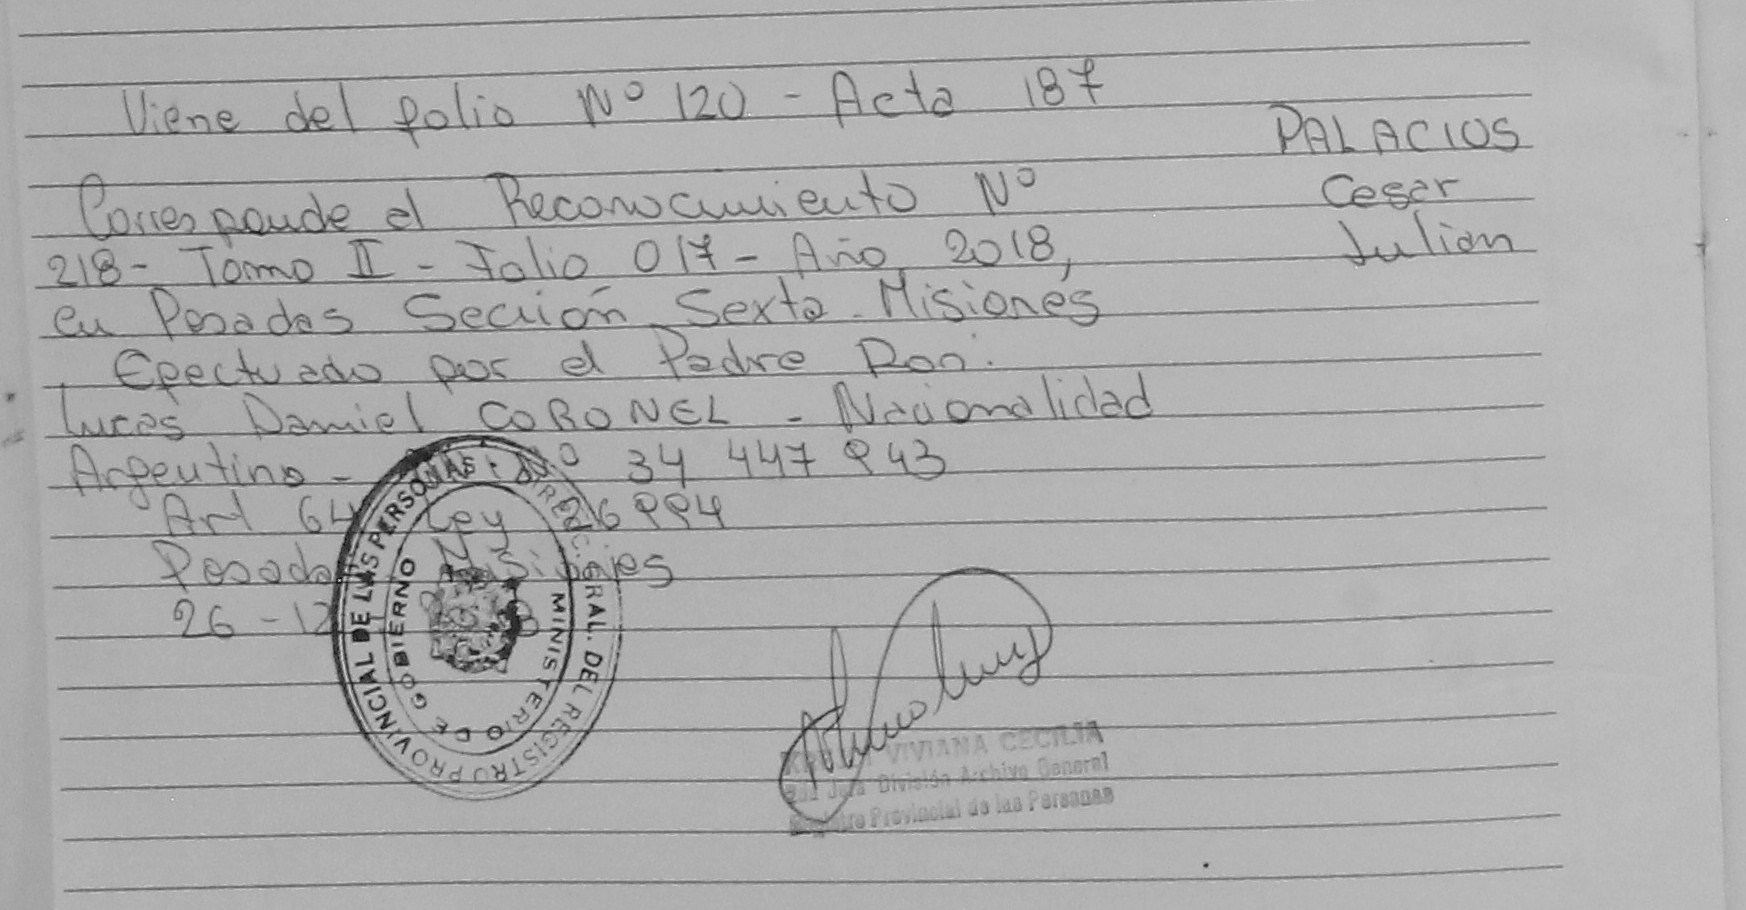 Viene del folio Nº 120 - Acta 187
PALACIOS
Cesar
Julian
Corresponde el Reconocimiento Nº
218 - Tomo II - Folio 017 - Año 2018,
en Posadas Sección Sexta - Misiones
Efectuado por el Padre Don:
Lucas Daniel CORONEL - Nacionalidad
Argentino - Nº 34 447 943
Art 64 Ley 26994
Posadas Misiones
26 - 12
DIREC. GRAL. DEL REGISTRO PROVINCIAL DE LAS PERSONAS
MINISTERIO DE GOBIERNO
VIVIANA CECILIA
División Archivo General
Registro Provincial de las Personas